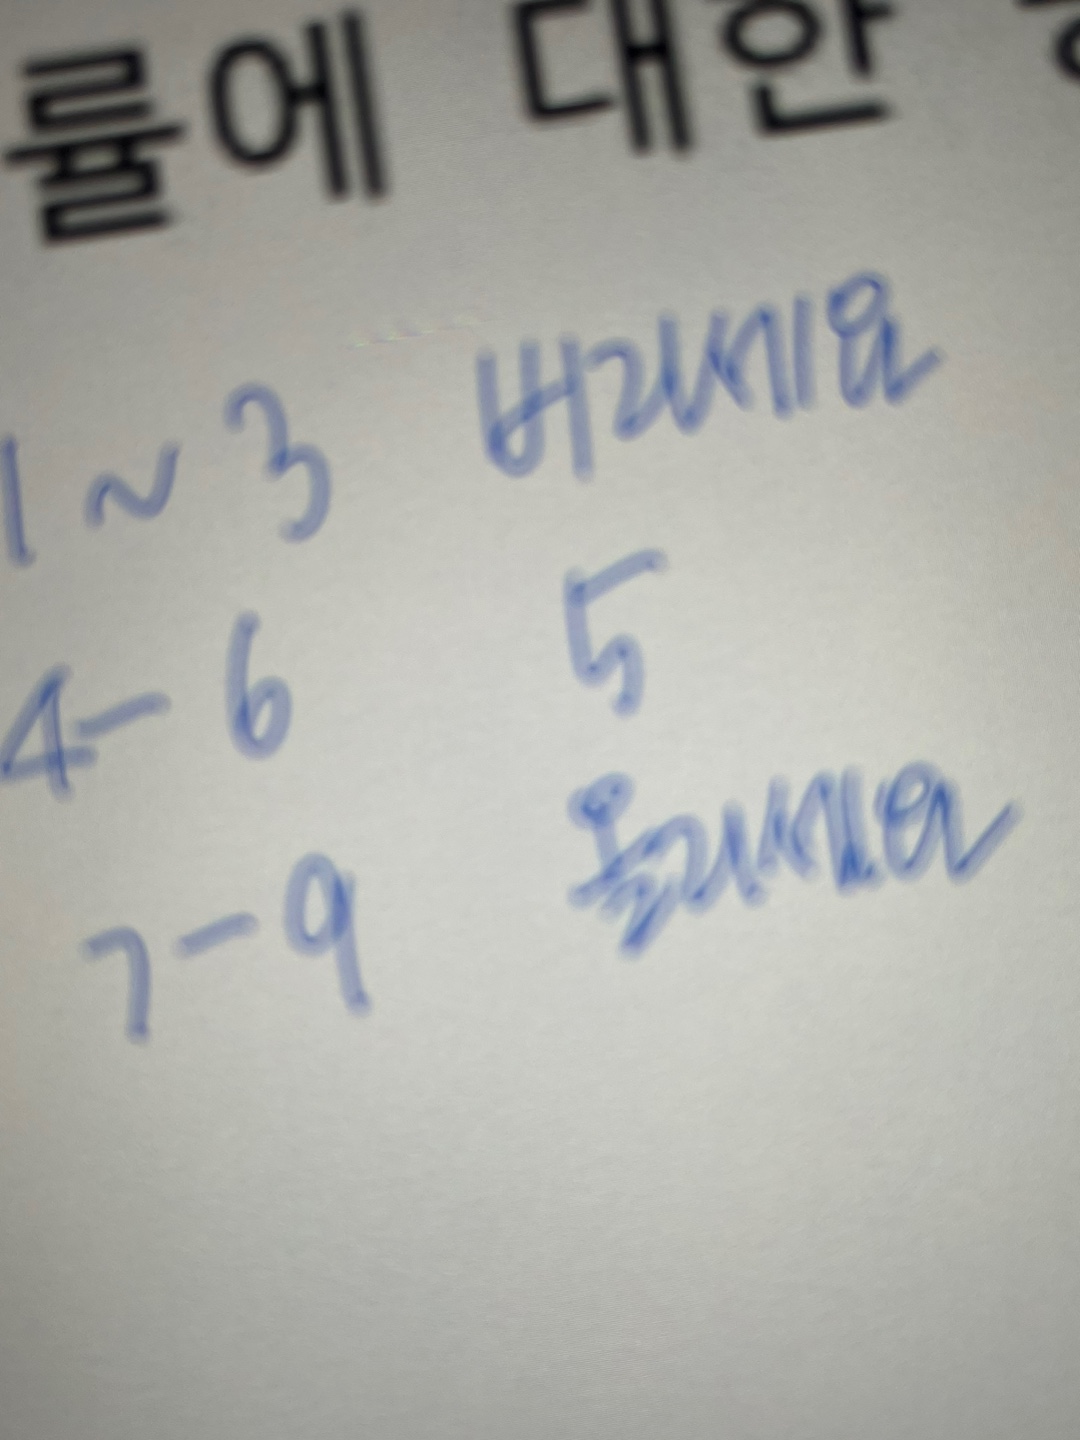 률에 대한
1~3 버리세요
4-6 5
7-9 올리세요